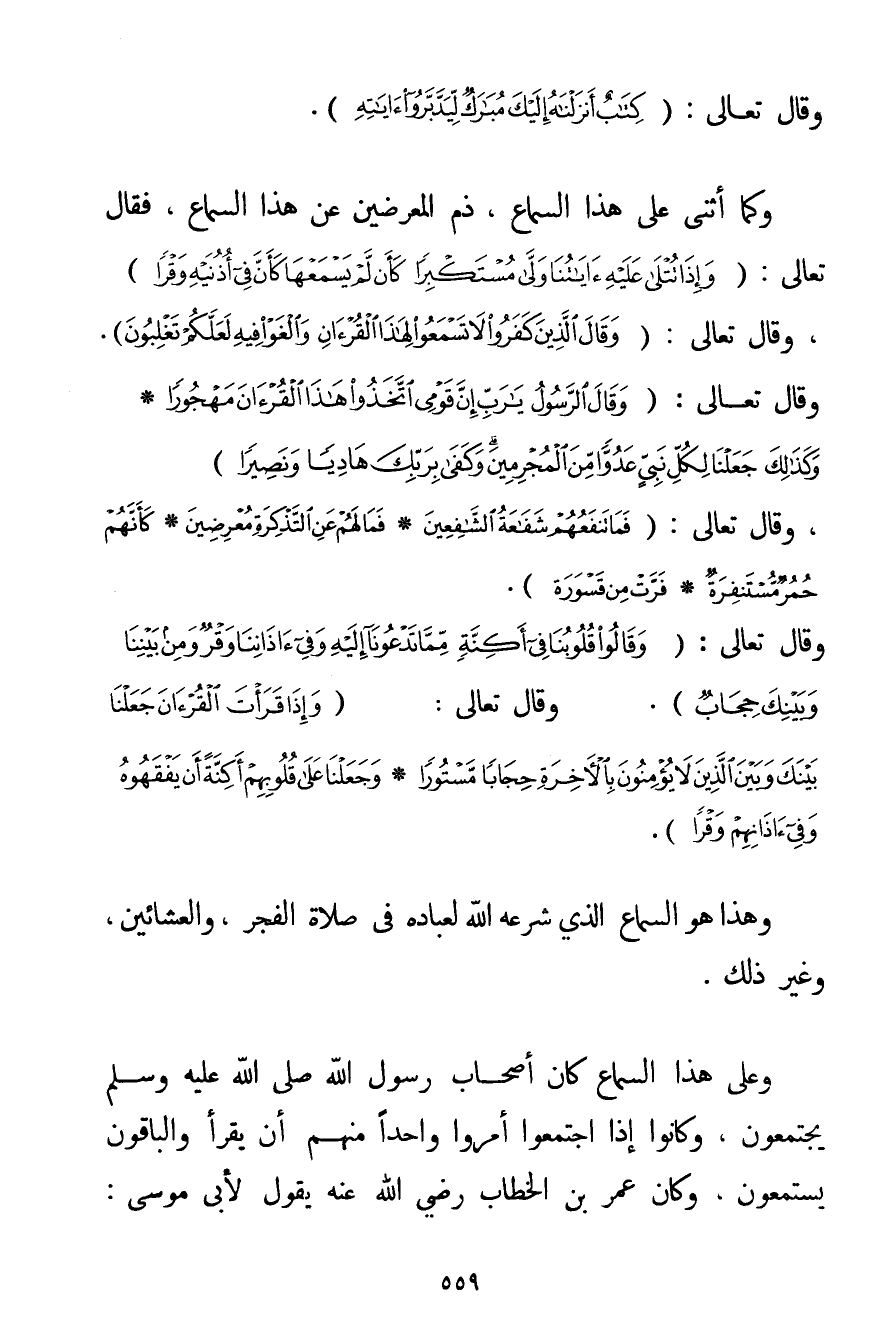 وقال تعـالى : ( كِتَٰبٌ أَنزَلْنَٰهُ إِلَيْكَ مُبَٰرَكٌ لِّيَدَّبَّرُوٓا۟ ءَايَٰتِهِ ) .
وكما أثنى على هذا السماع ، ذم المعرضين عن هذا السماع ، فقال
تعالى : ( وَإِذَا تُتْلَىٰ عَلَيْهِ ءَايَٰتُنَا وَلَّىٰ مُسْتَكْبِرًا كَأَن لَّمْ يَسْمَعْهَا كَأَنَّ فِىٓ أُذُنَيْهِ وَقْرًا )
، وقال تعالى : ( وَقَالَ ٱلَّذِينَ كَفَرُوا۟ لَا تَسْمَعُوا۟ لِهَٰذَا ٱلْقُرْءَانِ وَٱلْغَوْا۟ فِيهِ لَعَلَّكُمْ تَغْلِبُونَ ) .
وقال تعـــالى : ( وَقَالَ ٱلرَّسُولُ يَٰرَبِّ إِنَّ قَوْمِى ٱتَّخَذُوا۟ هَٰذَا ٱلْقُرْءَانَ مَهْجُورًا *
وَكَذَٰلِكَ جَعَلْنَا لِكُلِّ نَبِىٍّ عَدُوًّا مِّنَ ٱلْمُجْرِمِينَ ۗ وَكَفَىٰ بِرَبِّكَ هَادِيًا وَنَصِيرًا )
، وقال تعالى : ( فَمَا تَنفَعُهُمْ شَفَٰعَةُ ٱلشَّٰفِعِينَ * فَمَا لَهُمْ عَنِ ٱلتَّذْكِرَةِ مُعْرِضِينَ * كَأَنَّهُمْ
حُمُرٌ مُّسْتَنفِرَةٌ * فَرَّتْ مِن قَسْوَرَة ) .
وقال تعالى : ( وَقَالُوا۟ قُلُوبُنَا فِىٓ أَكِنَّةٍ مِّمَّا تَدْعُونَآ إِلَيْهِ وَفِىٓ ءَاذَانِنَا وَقْرٌ وَمِنۢ بَيْنِنَا
وَبَيْنِكَ حِجَابٌ ) . وقال تعالى : ( وَإِذَا قَرَأْتَ ٱلْقُرْءَانَ جَعَلْنَا
بَيْنَكَ وَبَيْنَ ٱلَّذِينَ لَا يُؤْمِنُونَ بِٱلْأَخِرَةِ حِجَابًا مَّسْتُورًا * وَجَعَلْنَا عَلَىٰ قُلُوبِهِمْ أَكِنَّةً أَن يَفْقَهُوهُ
وَفِىٓ ءَاذَانِهِمْ وَقْرًا ) .
وهذا هو السماع الذي شرعه الله لعباده فى صلاة الفجر ، والعشائين ،
وغير ذلك .
وعلى هذا السماع كان أصحـــاب رسول الله صلى الله عليه وســـلم
يجتمعون ، وكانوا إذا اجتمعوا أمروا واحداً منهـــم أن يقرأ والباقون
يستمعون . وكان عمر بن الخطاب رضي الله عنه يقول لأبى موسى :
٥٥٩